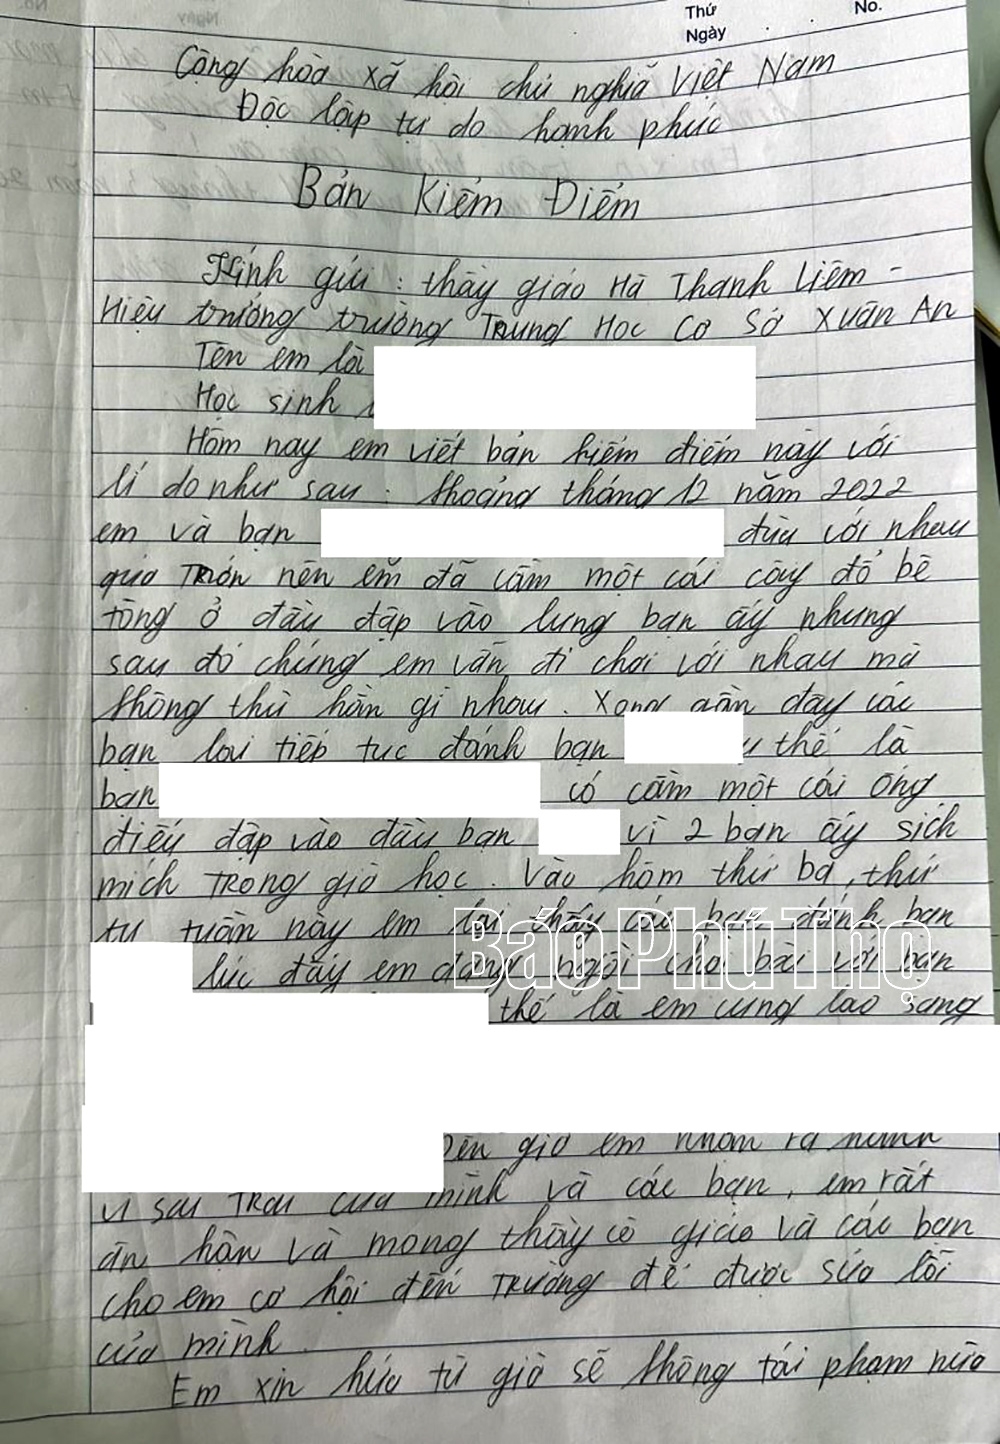 Thứ
No.
Ngày
Cộng hòa xã hội chủ nghĩa Việt Nam
Độc lập tự do hạnh phúc
Bản Kiểm Điểm
Kính gửi : thầy giáo Hà Thanh Liêm -
Hiệu trưởng trường Trung Học Cơ Sở Xuân An
Tên em là
Học sinh
Hôm nay em viết bản kiểm điểm này với
lí do như sau : khoảng tháng 12 năm 2022
em và bạn đùa với nhau
quá trớn nên em đã cầm một cái cây đổ bê
tông ở đấy đập vào lưng bạn ấy nhưng
sau đó chúng em vẫn đi chơi với nhau mà
không thù hằn gì nhau. Xong gần đây các
bạn lại tiếp tục đánh bạn thế là
bạn có cầm một cái ống
điếu đập vào đầu bạn vì 2 bạn ấy sích
mích trong giờ học. Vào hôm thứ ba, thứ
tư tuần này em lại thấy các bạn đánh bạn
lúc đấy em đang ngồi chơi bài với bạn
thế là em cũng lao sang
Đến giờ em nhận ra hành
vi sai trái của mình và các bạn, em rất
ân hận và mong thầy cô giáo và các bạn
cho em cơ hội đến trường để được sửa lỗi
của mình.
Em xin hứa từ giờ sẽ không tái phạm nữa
Báo Phú Thọ